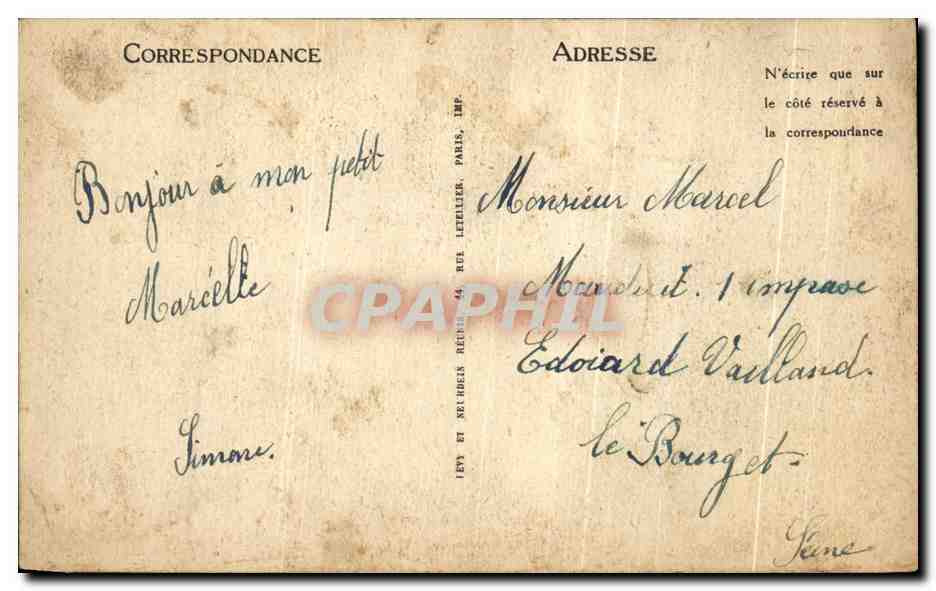 CORRESPONDANCE
ADRESSE
N'écrire que sur
le côté réservé à
la correspondance
Bonjour à mon petit
Marcelle
Simone.
LEVY ET NEURDEIN RÉUNIS 44, RUE LETELLIER, PARIS, IMP.
Monsieur Marcel
Mauduit. 1 impase
Edoiard Vailland.
le Bourget.
Seine
CPAPHIL